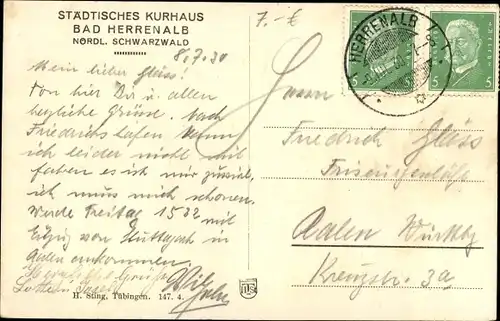 STÄDTISCHES KURHAUS
BAD HERRENALB
NÖRDL. SCHWARZWALD
7.-€
8.7.30
Mein lieber Gläss!
Von hier Dir u. allen
herzliche Grüsse. Nach
Friedrichshafen kann
ich leider nicht mit
fahren es ist mir zuviel,
ich muss mich schonen.
Werde Freitag 1532 mit
Eilzug von Stuttgart in
Aalen ankommen.
Herzliche Grüsse
H. Sting, Tübingen. 147. 4.
HERRENALB
5
5
Herrn
Friedrich Gläss
Aalen Württbg
Kreuzstr. 3a